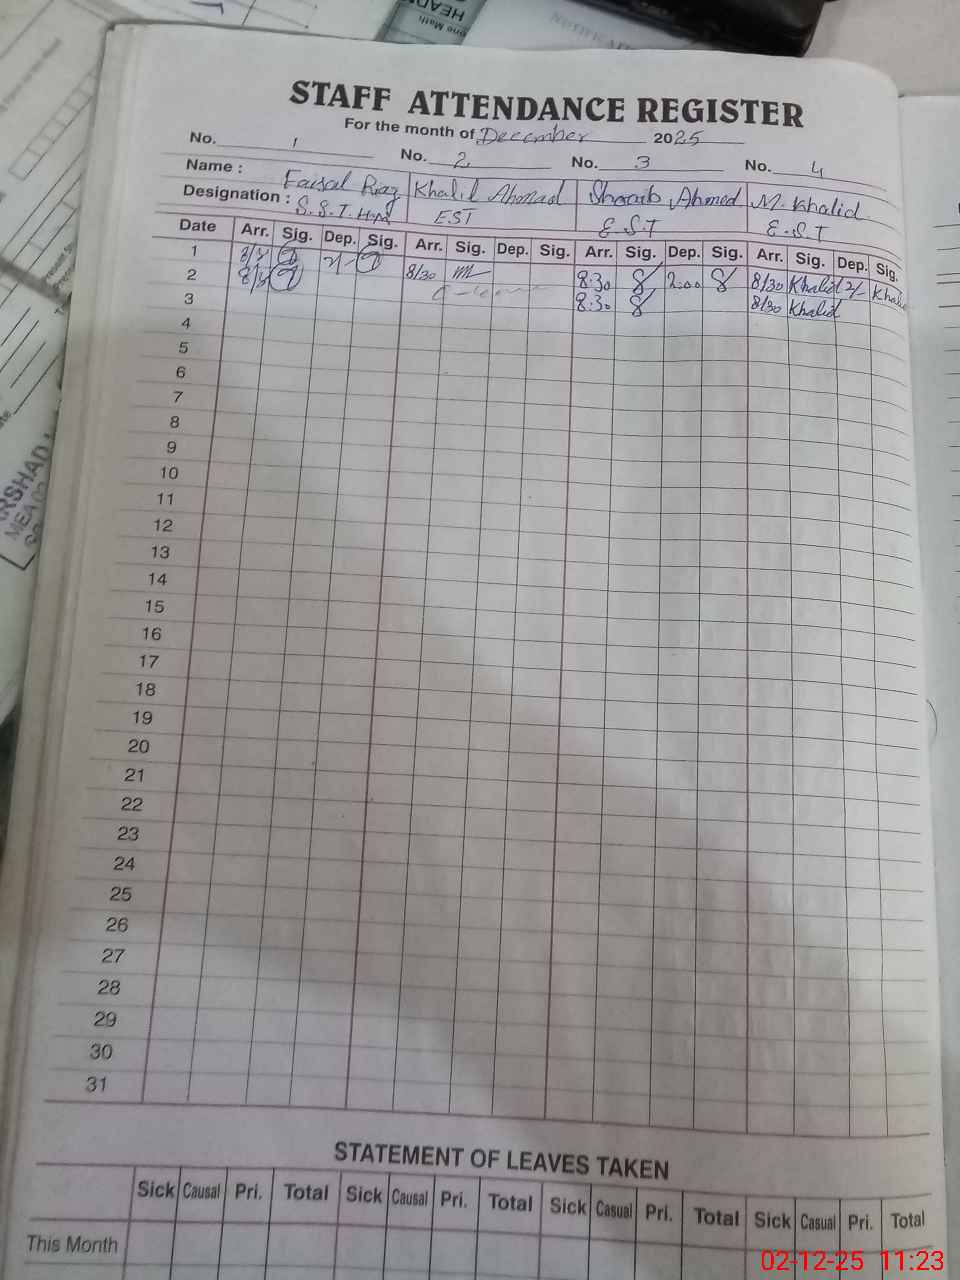 HEAD
one Math
NOTIFICA
STAFF ATTENDANCE REGISTER
For the month of December 2025
No. 1 No. 2 No. 3 No. 4
Name : Faisal Riaz Khalil Ahmad Shoaib Ahmed M. Khalid
Designation : S.S.T. H.M EST E.S.T E.S.T
Date Arr. Sig. Dep. Sig. Arr. Sig. Dep. Sig. Arr. Sig. Dep. Sig. Arr. Sig. Dep. Sig.
1 8/30 2/- 8/30 8:30 2:00 8/30 Khalid 2/- Khalid
2 8/30 C-leave 8:30 8/30 Khalid
3
4
5
6
7
8
9
10
11
12
13
14
15
16
17
18
19
20
21
22
23
24
25
26
27
28
29
30
31
STATEMENT OF LEAVES TAKEN
Sick Causal Pri. Total Sick Causal Pri. Total Sick Casual Pri. Total Sick Casual Pri. Total
This Month
02-12-25 11:23